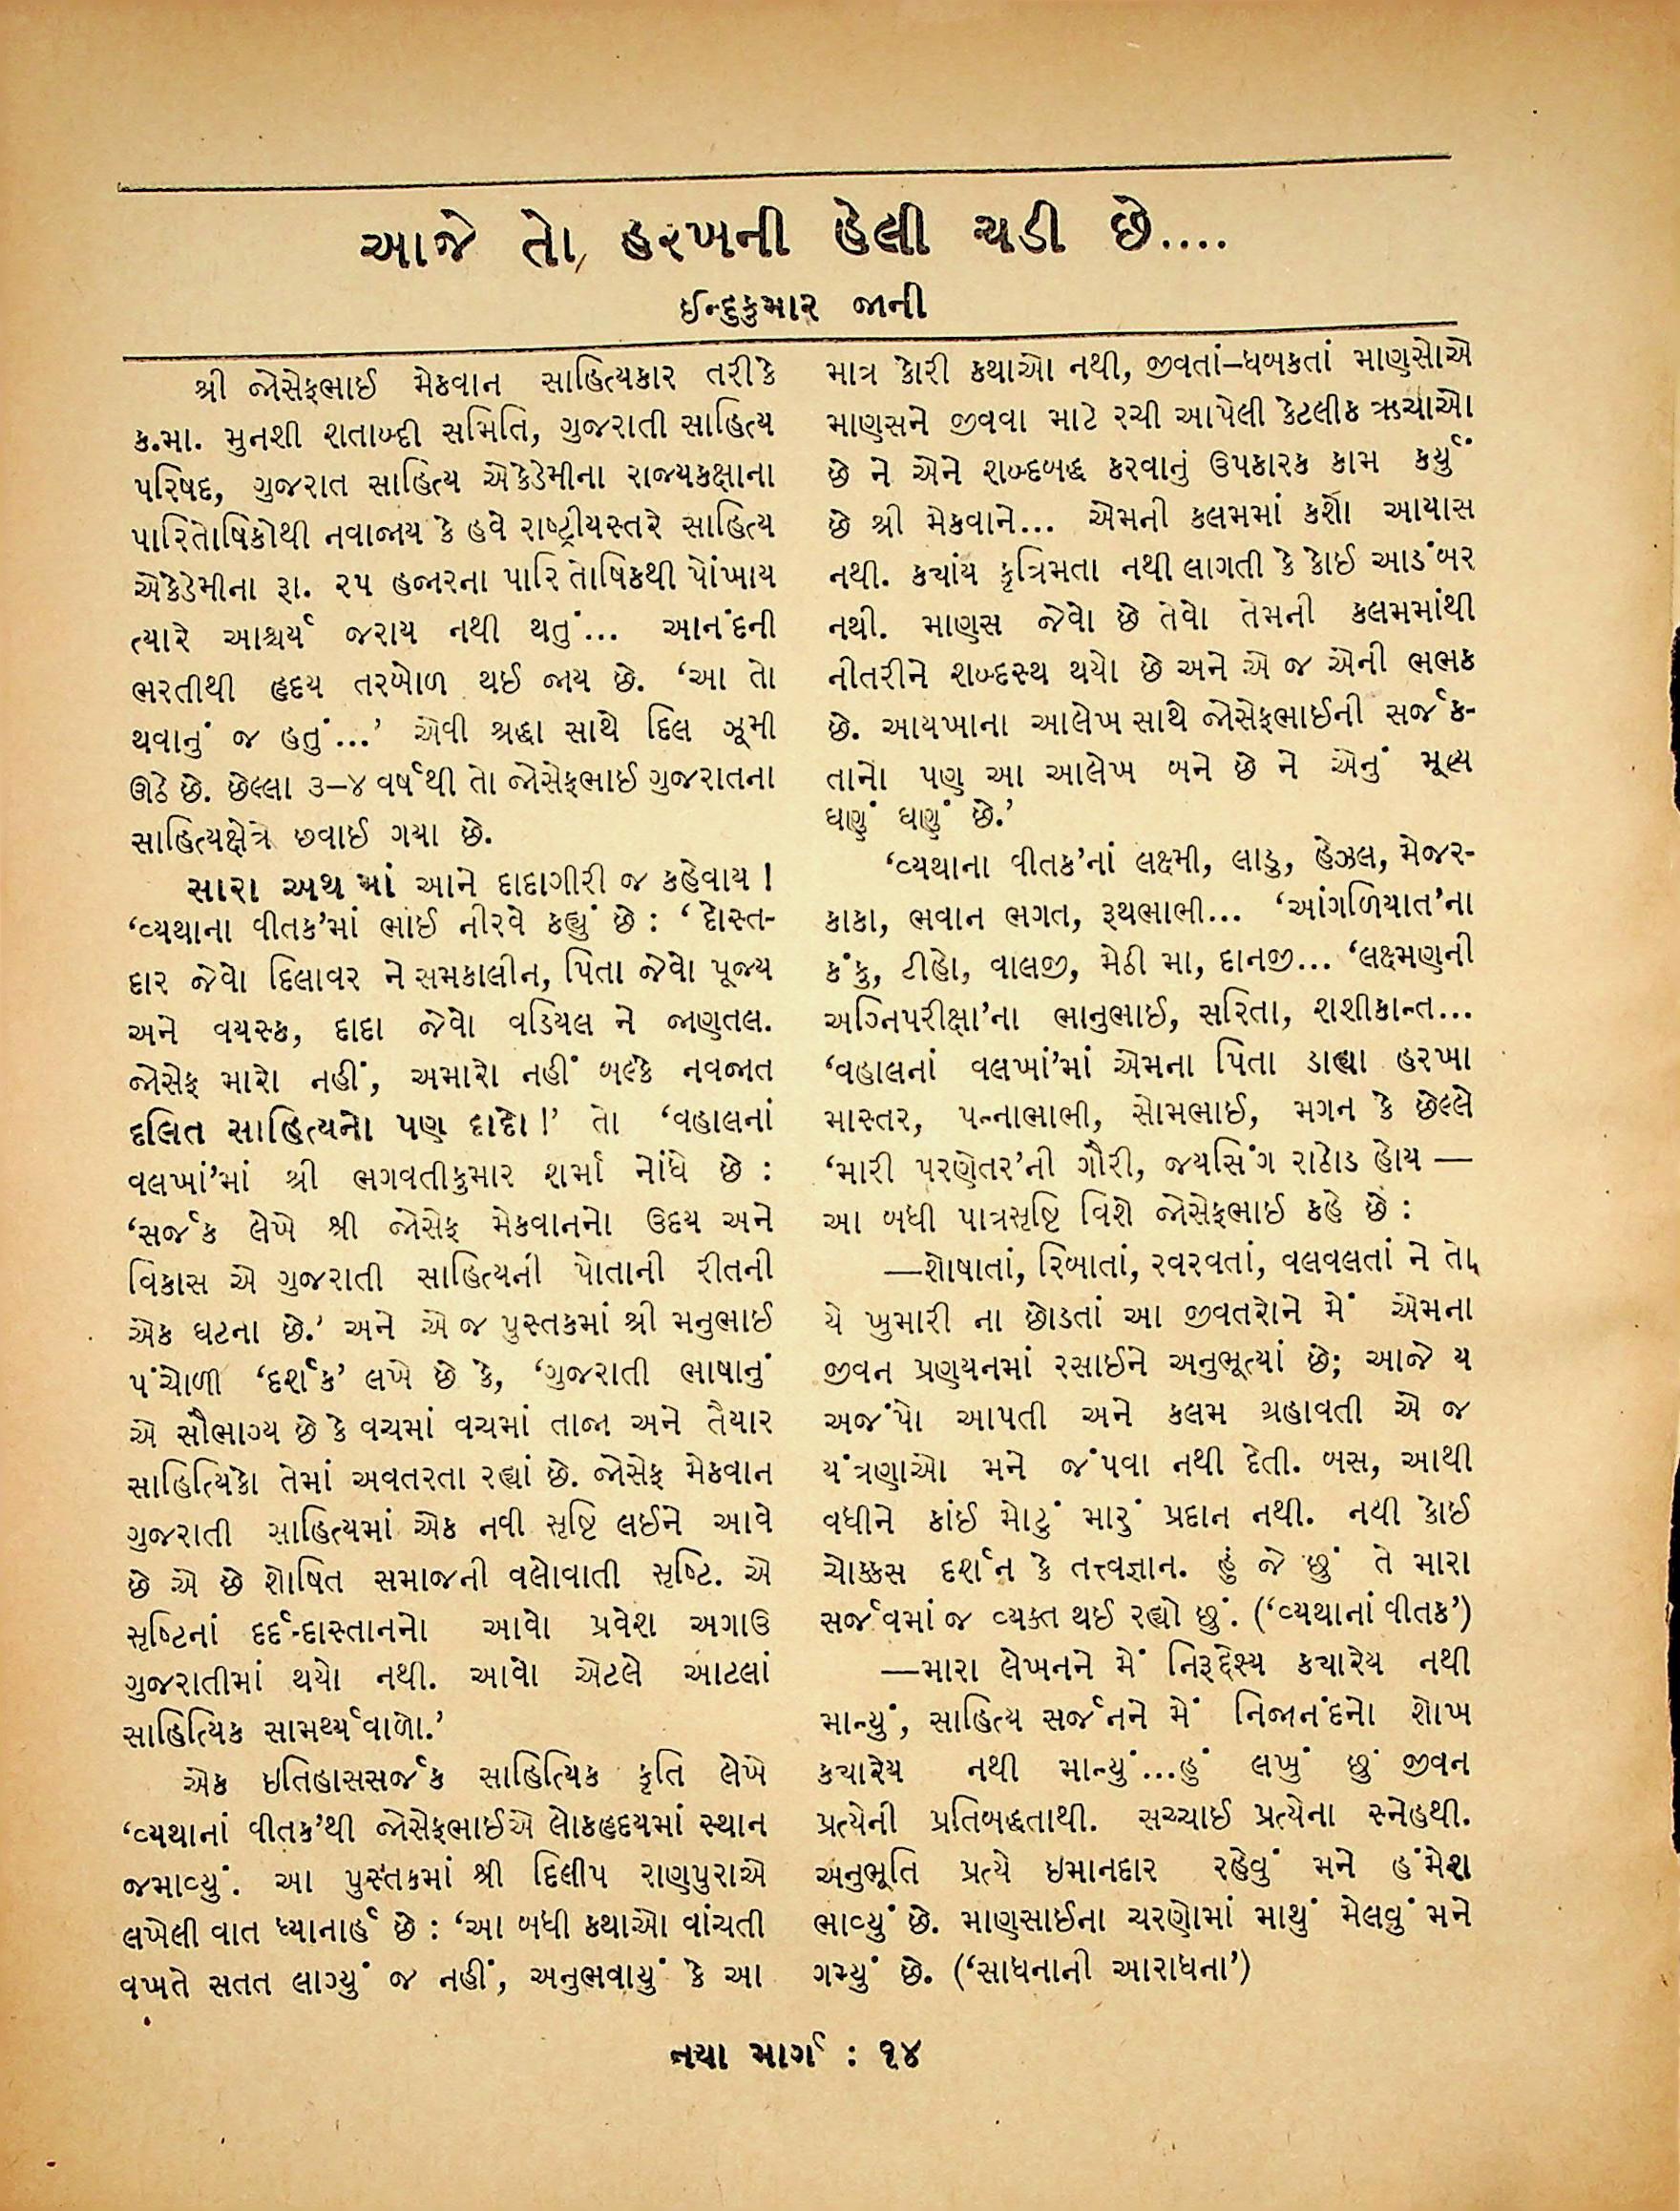 આજે તો હરખની હેલી ચડી છે....
ઈન્દુકુમાર જાની
શ્રી જોસેફભાઈ મેકવાન સાહિત્યકાર તરીકે
ક.મા. મુનશી શતાબ્દી સમિતિ, ગુજરાતી સાહિત્ય
પરિષદ, ગુજરાત સાહિત્ય એકેડેમીના રાજ્યકક્ષાના
પારિતોષિકોથી નવાજાય કે હવે રાષ્ટ્રીયસ્તરે સાહિત્ય
એકેડેમીના રૂા. ૨૫ હજારના પારિતોષિકથી પોંખાય
ત્યારે આશ્ચર્ય જરાય નથી થતું... આનંદની
ભરતીથી હૃદય તરબોળ થઈ જાય છે. ‘આ તો
થવાનું જ હતું...’ એવી શ્રદ્ધા સાથે દિલ ઝૂમી
ઊઠે છે. છેલ્લા ૩–૪ વર્ષથી તો જોસેફભાઈ ગુજરાતના
સાહિત્યક્ષેત્રે છવાઈ ગયા છે.
સારા અર્થમાં આને દાદાગીરી જ કહેવાય !
‘વ્યથાના વીતક’માં ભાઈ નીરવે કહ્યું છે : ‘દોસ્ત-
દાર જેવો દિલાવર ને સમકાલીન, પિતા જેવો પૂજ્ય
અને વયસ્ક, દાદા જેવો વડિયલ ને જાણતલ.
જોસેફ મારો નહીં, અમારો નહીં બલ્કે નવજાત
દલિત સાહિત્યનો પણ દાદો !’ તો ‘વહાલનાં
વલખાં’માં શ્રી ભગવતીકુમાર શર્મા નોંધે છે :
‘સર્જક લેખે શ્રી જોસેફ મેકવાનનો ઉદય અને
વિકાસ એ ગુજરાતી સાહિત્યની પોતાની રીતની
એક ઘટના છે.’ અને એ જ પુસ્તકમાં શ્રી મનુભાઈ
પંચોળી ‘દર્શક’ લખે છે કે, ‘ગુજરાતી ભાષાનું
એ સૌભાગ્ય છે કે વચમાં વચમાં તાજા અને તૈયાર
સાહિત્યિકો તેમાં અવતરતા રહ્યાં છે. જોસેફ મેકવાન
ગુજરાતી સાહિત્યમાં એક નવી સૃષ્ટિ લઈને આવે
છે એ છે શોષિત સમાજની વલોવાતી સૃષ્ટિ. એ
સૃષ્ટિનાં દર્દ-દાસ્તાનનો આવો પ્રવેશ અગાઉ
ગુજરાતીમાં થયો નથી. આવો એટલે આટલાં
સાહિત્યિક સામર્થ્યવાળો.’
એક ઇતિહાસસર્જક સાહિત્યિક કૃતિ લેખે
‘વ્યથાનાં વીતક’થી જોસેફભાઈએ લોકહૃદયમાં સ્થાન
જમાવ્યું. આ પુસ્તકમાં શ્રી દિલીપ રાણપુરાએ
લખેલી વાત ધ્યાનાર્હ છે : ‘આ બધી કથાઓ વાંચતી
વખતે સતત લાગ્યું જ નહીં, અનુભવાયું કે આ
માત્ર કોરી કથાઓ નથી, જીવતાં–ધબકતાં માણસોએ
માણસને જીવવા માટે રચી આપેલી કેટલીક ઋચાઓ
છે ને એને શબ્દબદ્ધ કરવાનું ઉપકારક કામ કર્યું
છે શ્રી મેકવાને... એમની કલમમાં કશો આયાસ
નથી. ક્યાંય કૃત્રિમતા નથી લાગતી કે કોઈ આડંબર
નથી. માણસ જેવો છે તેવો તેમની કલમમાંથી
નીતરીને શબ્દસ્થ થયો છે અને એ જ એની ભભક
છે. આયખાના આલેખ સાથે જોસેફભાઈની સર્જક-
તાનો પણ આ આલેખ બને છે ને એનું મૂલ્ય
ઘણું ઘણું છે.’
‘વ્યથાના વીતક’નાં લક્ષ્મી, લાડુ, હેઝલ, મેજર-
કાકા, ભવાન ભગત, રૂથભાભી... ‘આંગળિયાત’ના
કંકુ, ટીહો, વાલજી, મેઠી મા, દાનજી... ‘લક્ષ્મણની
અગ્નિપરીક્ષા’ના ભાનુભાઈ, સરિતા, શશીકાન્ત...
‘વહાલનાં વલખાં’માં એમના પિતા ડાહ્યા હરખા
માસ્તર, પન્નાભાભી, સોમભાઈ, મગન કે છેલ્લે
‘મારી પરણેતર’ની ગૌરી, જયસિંગ રાઠોડ હોય —
આ બધી પાત્રસૃષ્ટિ વિશે જોસેફભાઈ કહે છે :
—શોષાતાં, રિબાતાં, રવરવતાં, વલવલતાં ને તો
યે ખુમારી ના છોડતાં આ જીવતરોને મેં એમના
જીવન પ્રણયનમાં રસાઈને અનુભૂત્યાં છે; આજે ય
અજંપો આપતી અને કલમ ગ્રહાવતી એ જ
યંત્રણાઓ મને જંપવા નથી દેતી. બસ, આથી
વધીને કાંઈ મોટું મારું પ્રદાન નથી. નથી કોઈ
ચોક્કસ દર્શન કે તત્ત્વજ્ઞાન. હું જે છું તે મારા
સર્જવમાં જ વ્યક્ત થઈ રહ્યો છું. (‘વ્યથાનાં વીતક’)
—મારા લેખનને મેં નિરૂદ્દેશ્ય ક્યારેય નથી
માન્યું, સાહિત્ય સર્જનને મેં નિજાનંદનો શોખ
ક્યારેય નથી માન્યું...હું લખું છું જીવન
પ્રત્યેની પ્રતિબદ્ધતાથી. સચ્ચાઈ પ્રત્યેના સ્નેહથી.
અનુભૂતિ પ્રત્યે ઇમાનદાર રહેવું મને હંમેશ
ભાવ્યું છે. માણસાઈના ચરણોમાં માથું મેલવું મને
ગમ્યું છે. (‘સાધનાની આરાધના’)
નયા માર્ગ : ૧૪